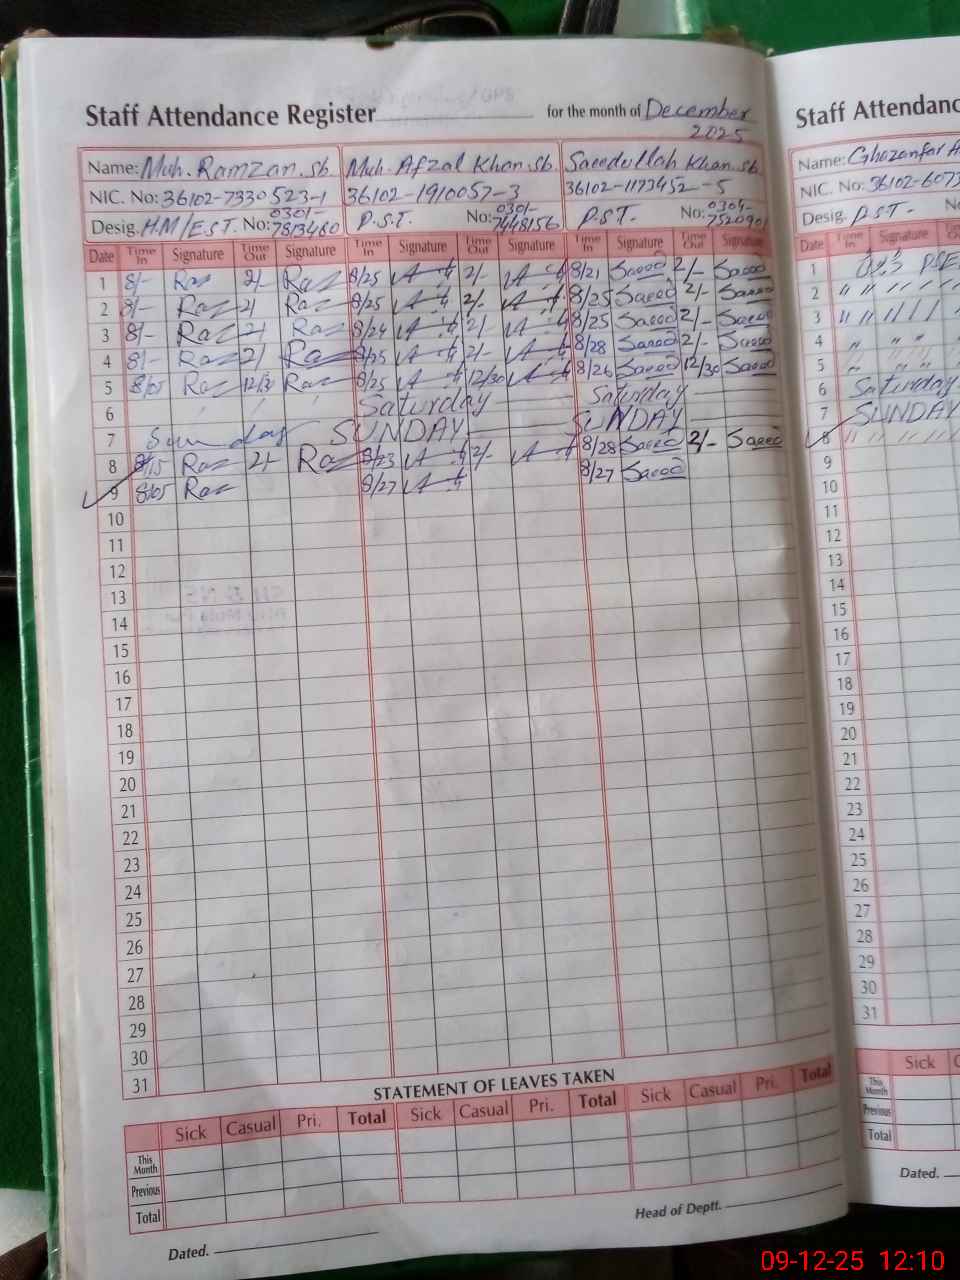 Staff Attendance Register for the month of December
2025
Name: Muh. Ramzan. sb. Muh. Afzal Khan. sb. Saeedullah Khan. sb.
NIC. No: 36102-7330523-1 36102-1910057-3 36102-1173452-5
Desig. H.M/E.S.T. No: 0301-7813480 P.S.T. No: 0301-7448156 P.S.T. No: 0304-7520901
Date Time In Signature Time Out Signature Time In Signature Time Out Signature Time In Signature Time Out Signature
1 8/- Raz 2/- Raz 8/25 2/- 8/21 Saeed 2/- Saeed
2 8/- Raz 2/ Raz 8/25 2/- 8/25 Saeed 2/- Saeed
3 8/- Raz 2/ Raz 8/24 2/- 8/25 Saeed 2/- Saeed
4 8/- Raz 2/ Raz 8/25 2/- 8/28 Saeed 2/- Saeed
5 8/05 Raz 12/30 Raz 8/25 12/30 8/26 Saeed 12/30 Saeed
6 Saturday Saturday
7 Sunday SUNDAY SUNDAY
8 8/15 Raz 2/- Raz 8/23 2/- 8/28 Saeed 2/- Saeed
9 8/05 Raz 8/27 8/27 Saeed
10
11
12
13
14
15
16
17
18
19
20
21
22
23
24
25
26
27
28
29
30
31
STATEMENT OF LEAVES TAKEN
Sick Casual Pri. Total Sick Casual Pri. Total Sick Casual Pri. Total
This Month
Previous
Total
Dated. Head of Deptt.
Staff Attendanc
Name: Ghazanfar
NIC. No: 36102-6073
Desig. P.S.T.
Date Time In Signature
1
2 " " " "
3 " "
4 " " "
5
6 Saturday
7 SUNDAY
8 " " " "
9
10
11
12
13
14
15
16
17
18
19
20
21
22
23
24
25
26
27
28
29
30
31
Sick
This Month
Previous
Total
Dated.
09-12-25 12:10